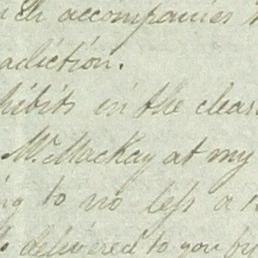 ch accompanies
adiction.
hibits in the clear
Mr. MacKay at my
g to no less a
delivered to you by